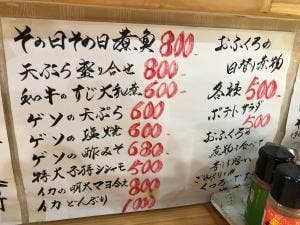 その日その日煮魚 800-
天ぷら盛り合せ 800-
和牛のすじ大根煮 600
ゲソの天ぷら 600
ゲソの塩焼 600
ゲソの酢みそ 680
特大子持シシャモ 500
イカの明太マヨ合え 800
イカどんぶり 1000
おふくろの
日替り煮物
各種 500-
ポテトサラダ
500
おふくろの
煮物